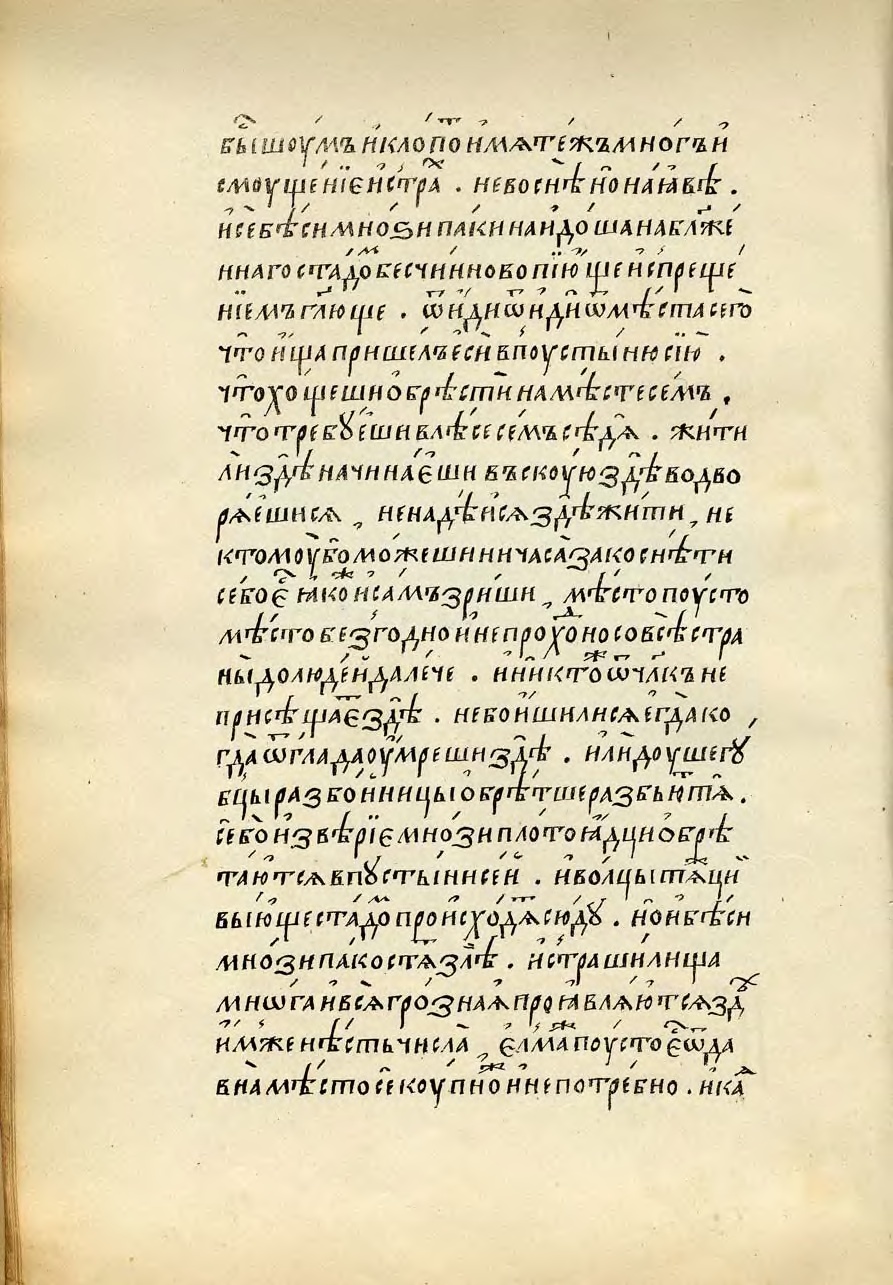 бышоумъ и клопо́ и мѧте́жъ многъ и
смоуще́нїе и стра́ . не во снѣ но на ꙗ҆вѣ .
и се бѣси мнози паки наидоша на бл҃же
ннаго стадо бесчинно вопїюще и спреще
нїемъ гл҃юще . ѿиди ѿиди ѿ мѣста сего
что ища пришелъ еси в поустыню сїю .
что хощеши обрѣсти на мѣсте семъ ,
что требꙋеши в лѣсе семъ сѣдѧ . жити
ли здѣ начинаеши въскоую здѣ водво
рѧешисѧ , не надѣисѧ здѣ жити , не
ктомоу бо можеши ни часа закоснѣти
се бо є ꙗко и самъ зриши , мѣсто поусто
мѣсто безгодно и непрохоⷣно со всѣ стра
ны до людеи далече . и никтоⷤ ѿ ч҃лкъ не
присѣщает здѣ . не боишили сѧ егда ко
гда ѿ глада оумреши здѣ . или доушегꙋ
бцы разбоиницы обрѣтше разбьют тѧ .
се бо и звѣрїе мнози плотоꙗдци обрѣ
таютсѧ в пꙋстыни сеи . и волцы тѧⷤци
выюще стадо происходѧт сюдꙋ . но и бѣси
мнози пакостѧт злѣ . и страшилища
мнѡга и всѧ грознаѧ проꙗвлѧютсѧ зд
имже нѣсть числа , єлмаⷤ поусто єст ѿ да
вна мѣсто се коупноⷤ и непотребно . и каѧ